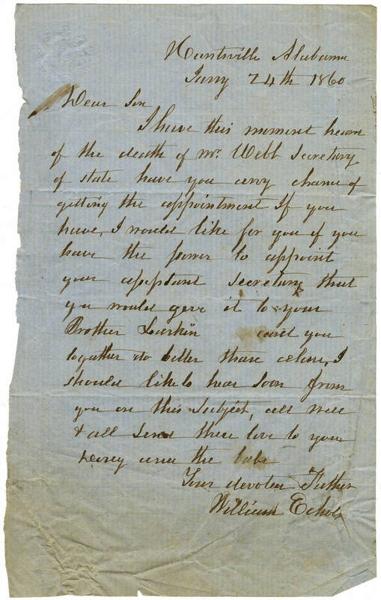 Huntsville Alabama
Jany 24th 1860
Dear Son
I have this moment hear
of the death of Mr. Webb Secretary
of state have you any chance of
getting the appointment If you
have, I would like for you if you
have the power to appoint
your assistant Secretary that
you would give it to your
Brother Larkin and you
together do better than alone, I
should like to hear soon from
you on this subject, all well
& all send there love to your
and the babe
Your devoted Father
William Echols